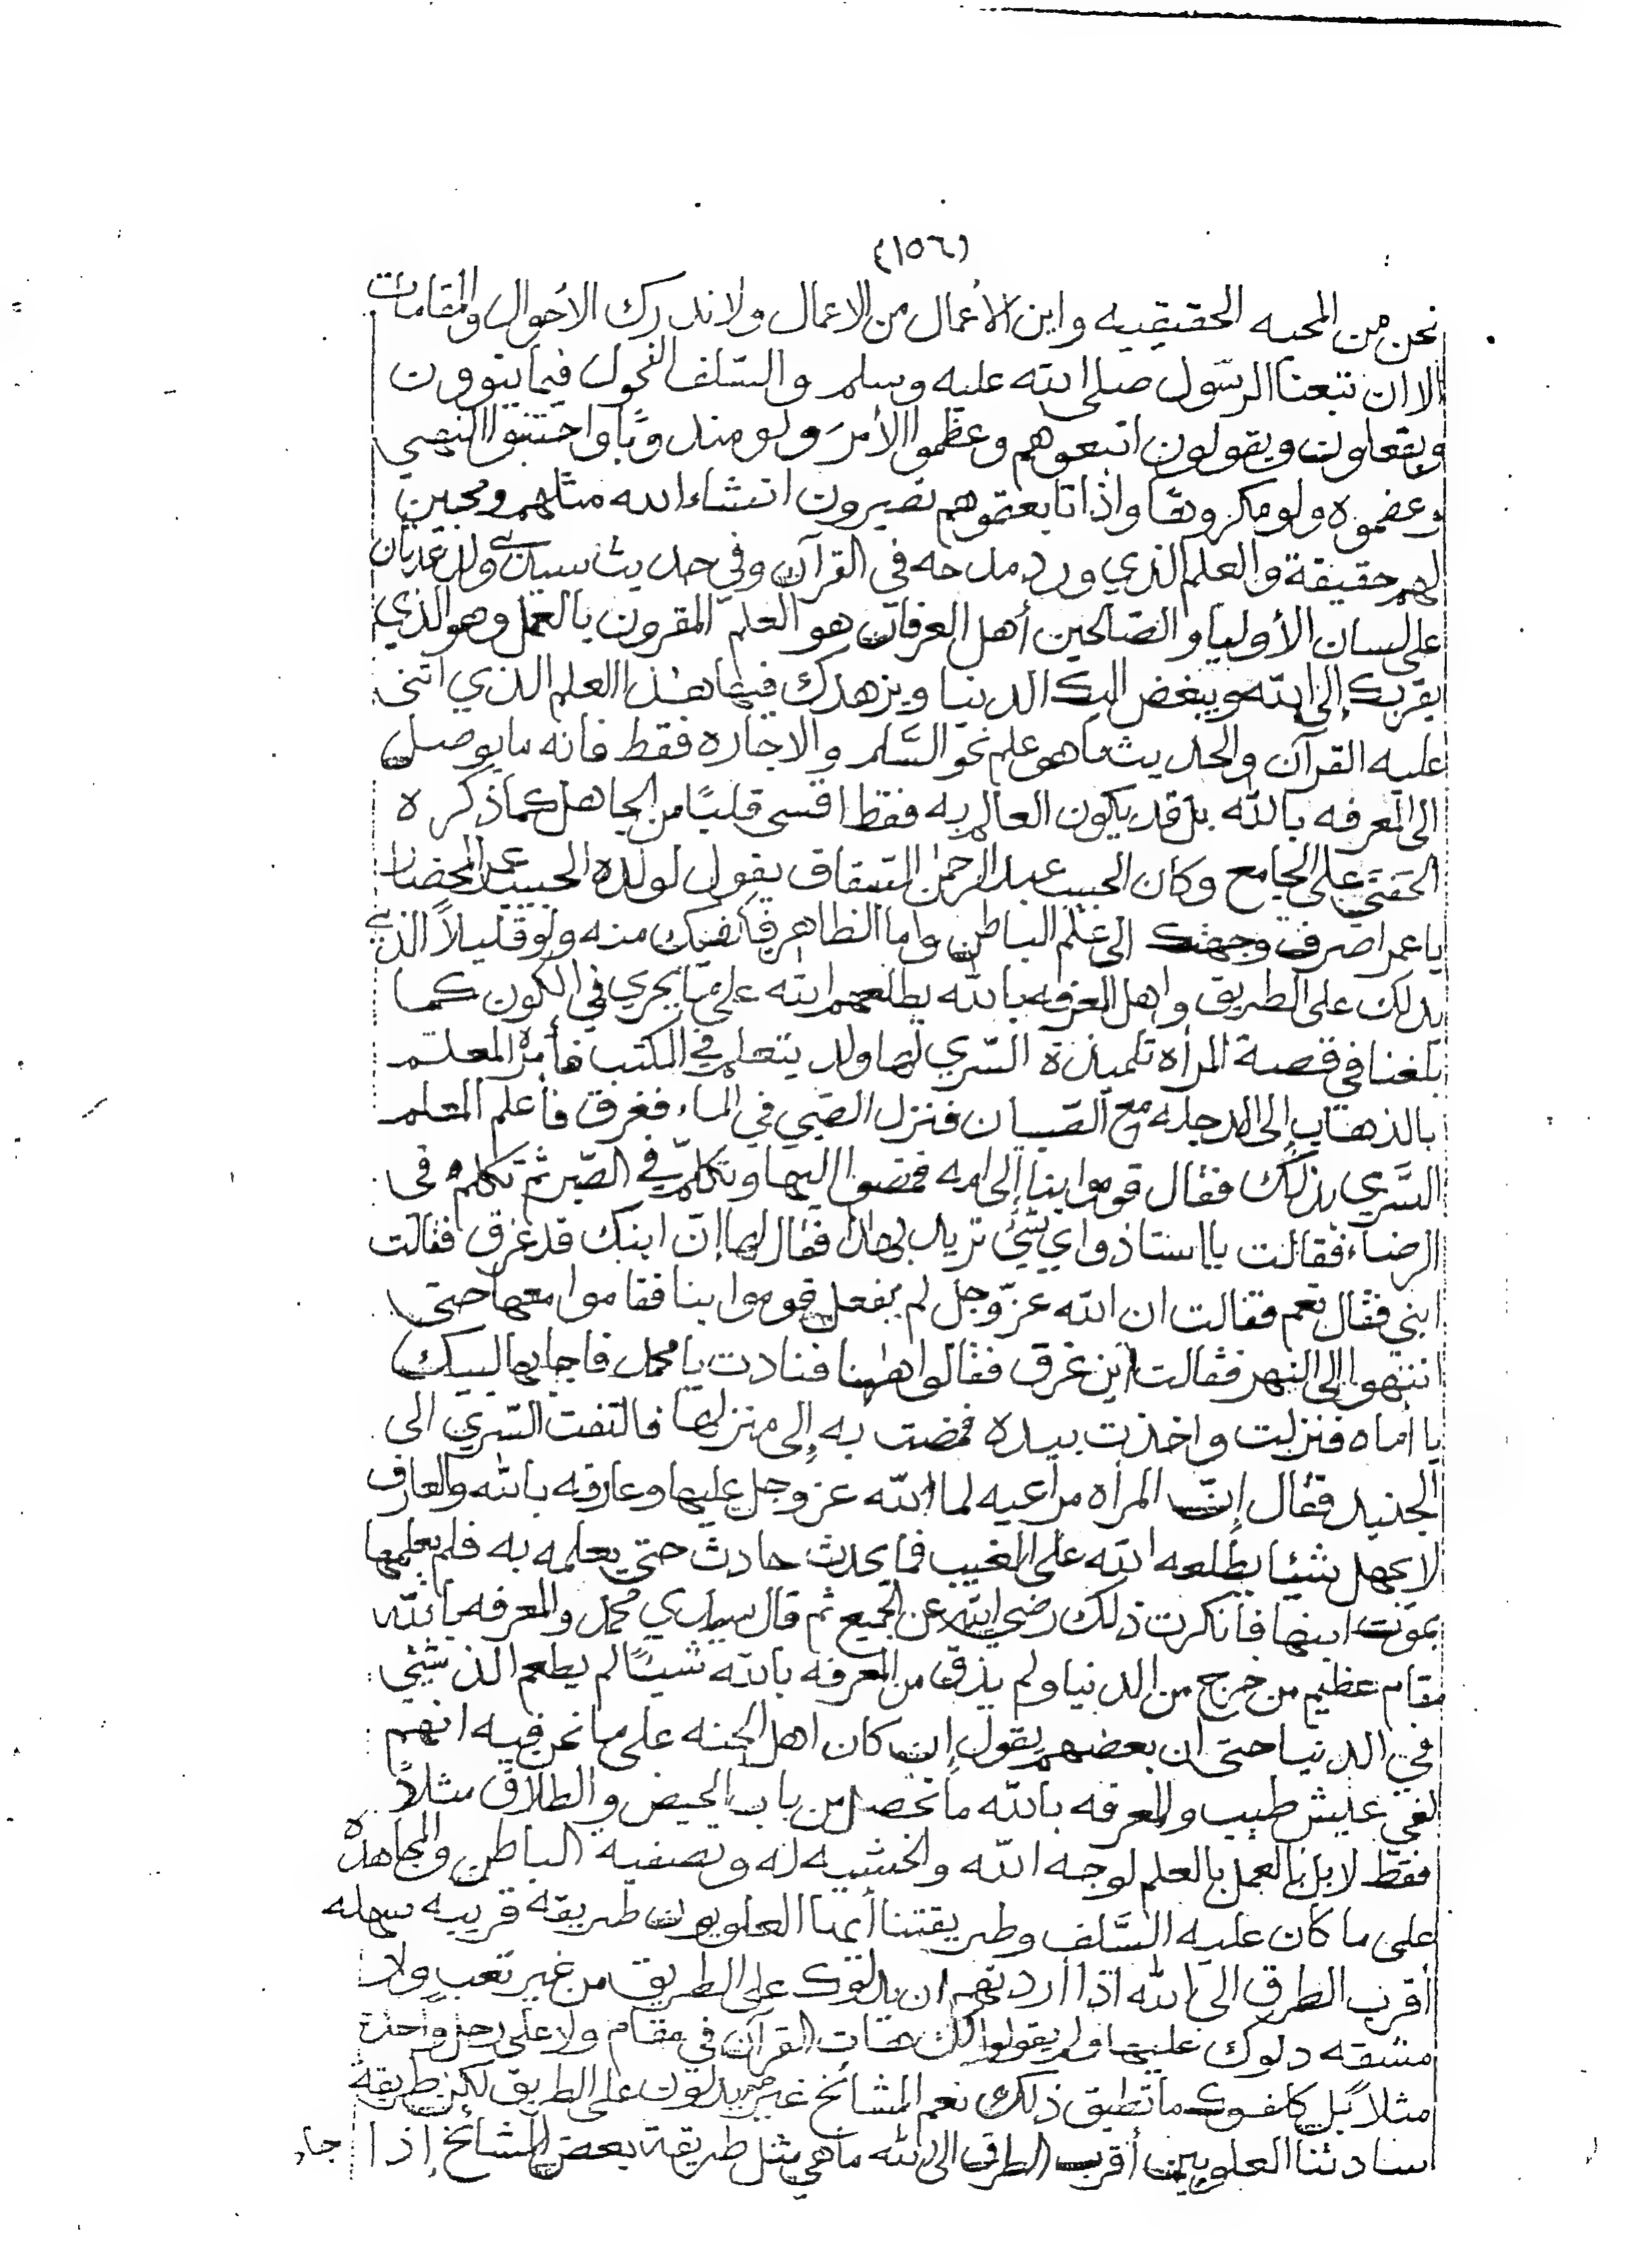 (١٥٦)
نحن من المحبه الحقيقيه واين الأعمال من الاعمال ولا ندرك الاحوال والمقامات
الا ان تبعنا الرسول صلى الله عليه وسلم والسّلف الفحول فيما ينوون
ويفعلون ويقولون اتبعوهم وعظّموا الأمرَ ولو مندوبًا واجتنبوا النهي
وعضموه ولو مكروهًا واذا تابعتموهم تصيرون انشاء الله مثلهم ومحبين
لهم حقيقة والعلم الذي ورد مدحه في القرآن وفي حديث سيد ولد عدنان
على لسان الأوليا والصّالحين أهل العرفان هو العلم المقرون بالعمل وهو الذي
يقربك إلى الله ويبغض اليك الدنيا ويزهدك فيها هذا العلم الذي اثنى
عليه القرآن والحديث ما هو علم نحو السَّلم والاجاره فقط فانه ما يوصل
الى المعرفه بالله بل قد يكون العالم به فقط اقسى قلبًا من الجاهل كما ذكره
الحفني على الجامع وكان الحبيب عبد الرحمن السقاف يقول لولده الحبيب عمر المحضار
يا عمر اصرف وجهتك الى علم الباطن واما الظاهر فيكفيك منه ولو قليلاً الذي
يدلك على الطريق واهل المعرفه بالله يطلعهم الله على ما يجري في الكون كما
بلغنا في قصة المرأه تلميذة السّري لها ولد يتعلم في المكتب فأمره المعلم
بالذهاب إلى الدجله مع الصبيان فنزل الصّبي في الماء فغرق فأعلم المعلم
السَّري بذلك فقال قوموا بنا إلى امه فمضوا اليها وتكلّم في الصّبر ثم تكلم في
الرضاء فقالت يا استاذ واي شئ تريد بهذا فقال لها إنّ ابنك قد غرق فقالت
ابني فقال نعم فقالت ان الله عزّ وجل لم يفعل قوموا بنا فقاموا معها حتى
انتهوا إلى النهر فقالت اين غرق فقالوا هٰهنا فنادت يا محمد فاجابها لبيك
يا أماه فنزلت واخذت بيده فمضت به إلى منزلها فالتفت السّري الى
الجنيد فقال إنّ المرأه مراعيه لما لله عز وجل عليها وعارفه بالله والعارف
لا يجهل شيئا يطلعه الله على الغيب فما يحدث حادث حتى يعلمه به فلم يعلمها
بموت ابنها فأنكرت ذلك رضي الله عن الجميع ثم قال سيدي محمد والمعرفه بالله
مقام عظيم من خرج من الدنيا ولم يذق من المعرفه بالله شيئًا لم يطعم الذ شيئ
في الدنيا حتى ان بعضهم يقول إن كان اهل الجنه على ما نحن فيه انهم
لفي عيش طيب والمعرفه بالله ما تحصل من باب الحيض والطلاق مثلاً
فقط لا بل بالعمل بالعلم لوجه الله والخشيه له وتصفية الباطن والمجاهده
على ما كان عليه السَّلف وطريقتنا أيها العلويون طريقه قريبه سهله
أقرب الطرق الى الله اذا أردتهم ان يدلوك على الطريق من غير تعب ولا
مشقه دلوك عليها ولم يقولوا لك هات القرآن في مقام ولا على رجل واحدة
مثلاً بل كلفوك ما تطيق ذلك نعم المشائخ غيرهم يدلون على الطريق لكن طريقة
سادتنا العلويين أقرب الطرق الى الله ما هي مثل طريقة بعض المشائخ إذا جاء